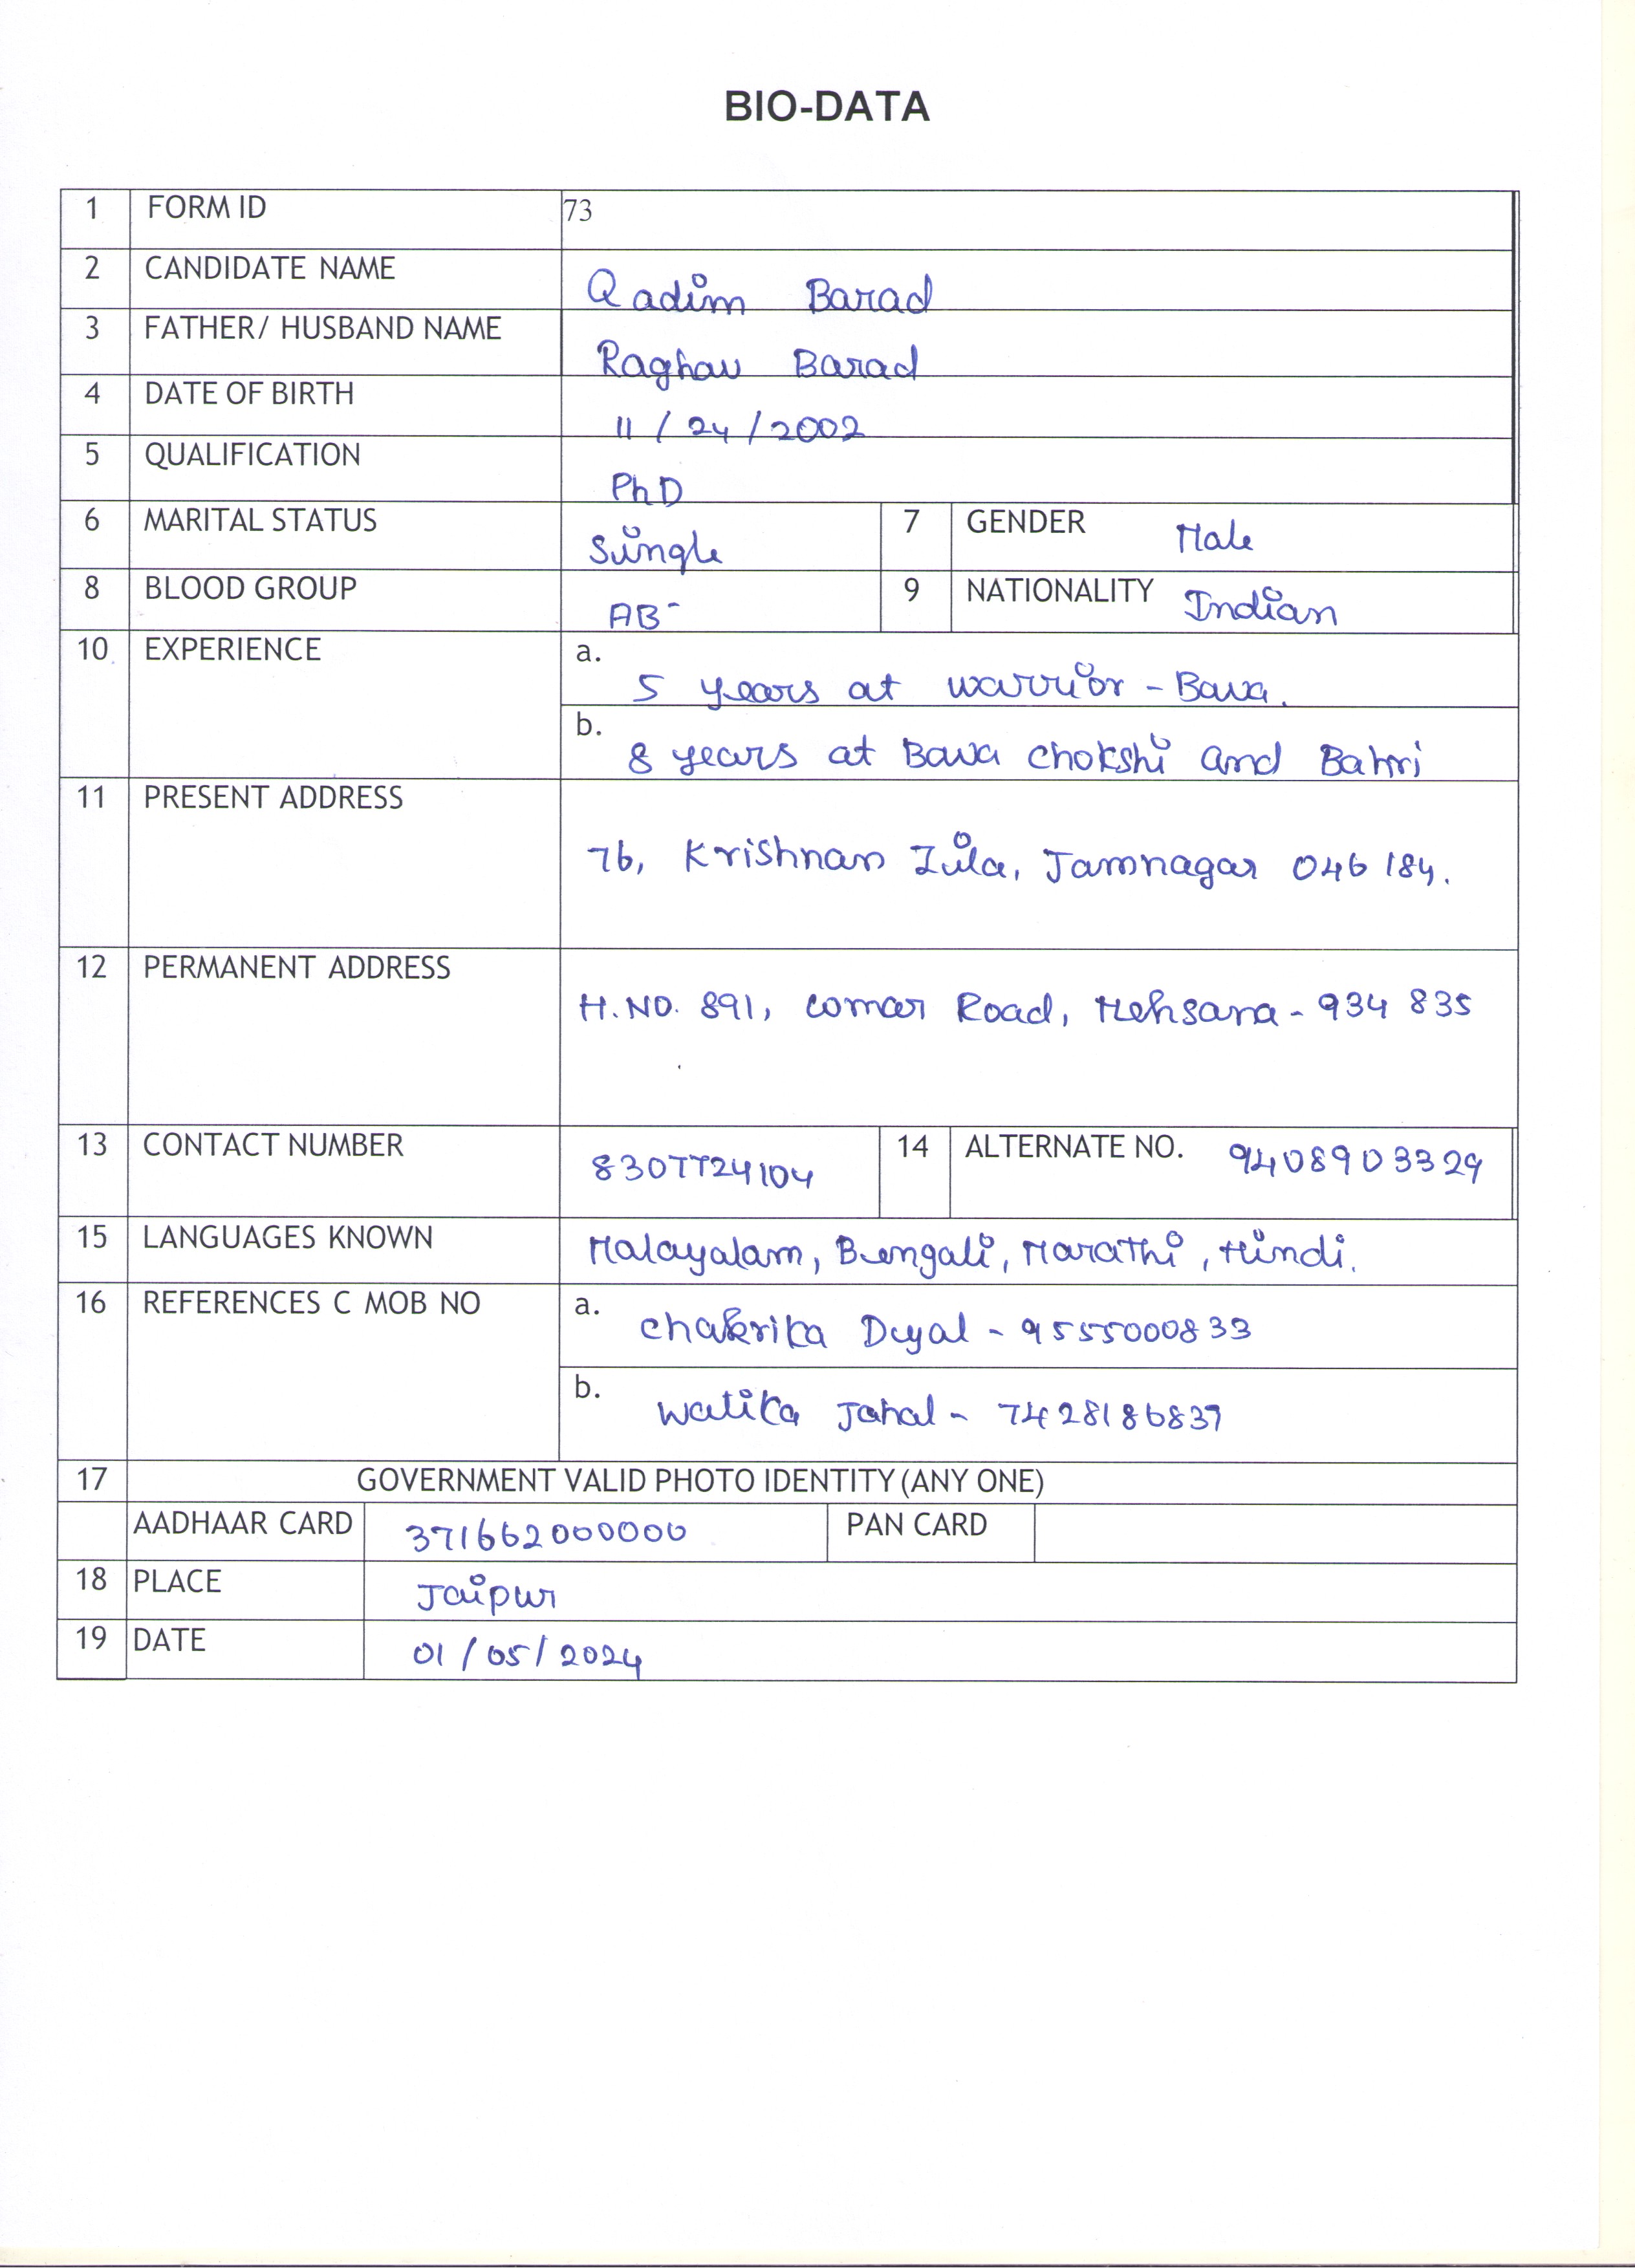 BIO-DATA
1 FORM ID 73
2 CANDIDATE NAME Qadim Barad
3 FATHER/ HUSBAND NAME Raghav Barad
4 DATE OF BIRTH 11 / 24 / 2002
5 QUALIFICATION PhD
6 MARITAL STATUS Single 7 GENDER Male
8 BLOOD GROUP AB- 9 NATIONALITY Indian
10 EXPERIENCE a. 5 years at warrior - Bava.
b. 8 years at Bava Chokshi and Bahri
11 PRESENT ADDRESS 76, Krishnan Zila, Jamnagar 046 184.
12 PERMANENT ADDRESS H.NO. 891, Comar Road, Mehsana - 934 835
13 CONTACT NUMBER 8307724104 14 ALTERNATE NO. 9408903329
15 LANGUAGES KNOWN Malayalam, Bengali, Marathi, Hindi.
16 REFERENCES C MOB NO a. Chakrika Dyal - 9555000833
b. Watika Jahal - 7428186837
17 GOVERNMENT VALID PHOTO IDENTITY (ANY ONE)
AADHAAR CARD 371662000000 PAN CARD
18 PLACE Jaipur
19 DATE 01 / 05 / 2024